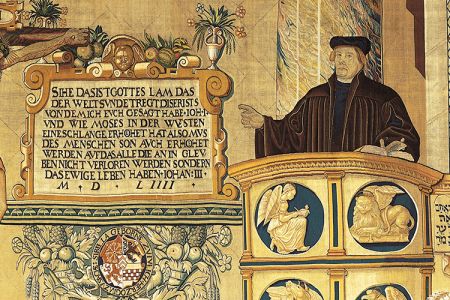 SIHE DAS IST GOTTES LAM DAS
DER WELT SVNDE TREGT DISER ISTS
VON DEM ICH EVCH GESAGT HABE · IOH · I ·
VND WIE MOSES IN DER WVSTEN
EINE SCHLANGE ERHOHET HAT ALSO MVS
DES MENSCHEN SON AVCH ERHOHET
WERDEN AVDAS ALLE DIE AN IN GLEV
BEN NICHT VERLOREN WERDEN SONDERN
DAS EWIGE LEBEN HABEN · IOHAN · III ·
M · D · LIIII ·